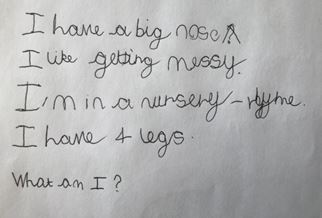 I have a big nose.
I like getting messy.
I'm in a nursery-rhyme.
I have 4 legs.
What am I?